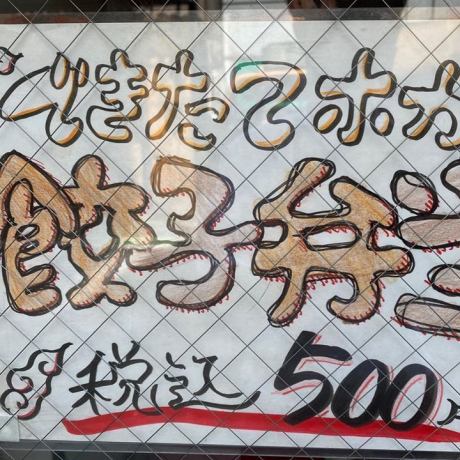 できたてホカ
餃子弁当
税込500